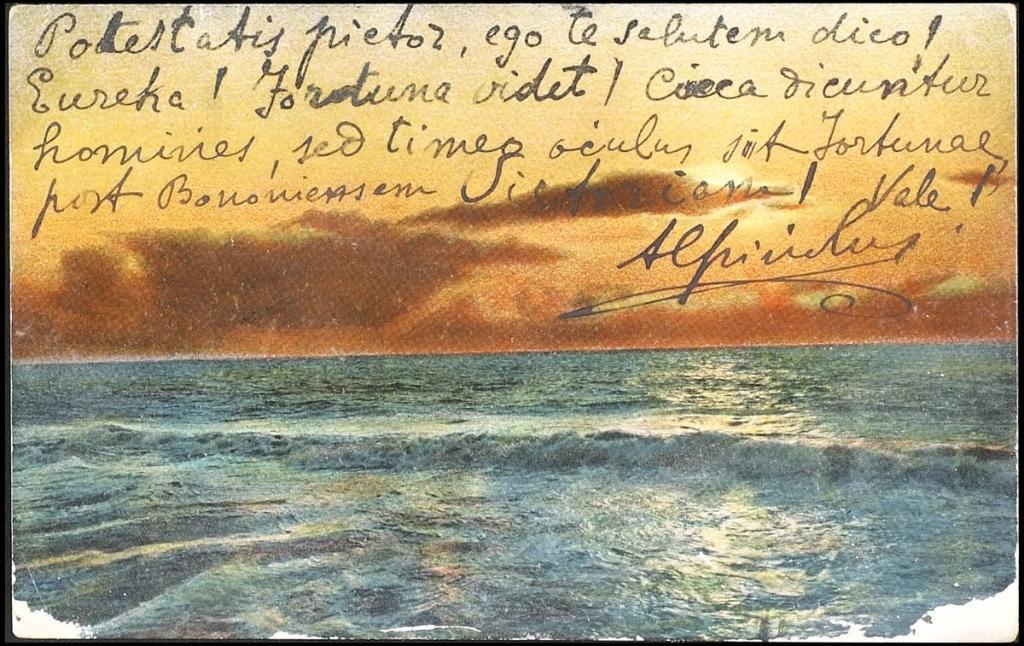 Potestatis pictor, ego te salutem dico!
Eureka! Fortuna videt! Cieca dicuntur
homines, sed timeo oculus sit Fortunae,
post Bononiensem Victoriam! Vale!
Alpinulus